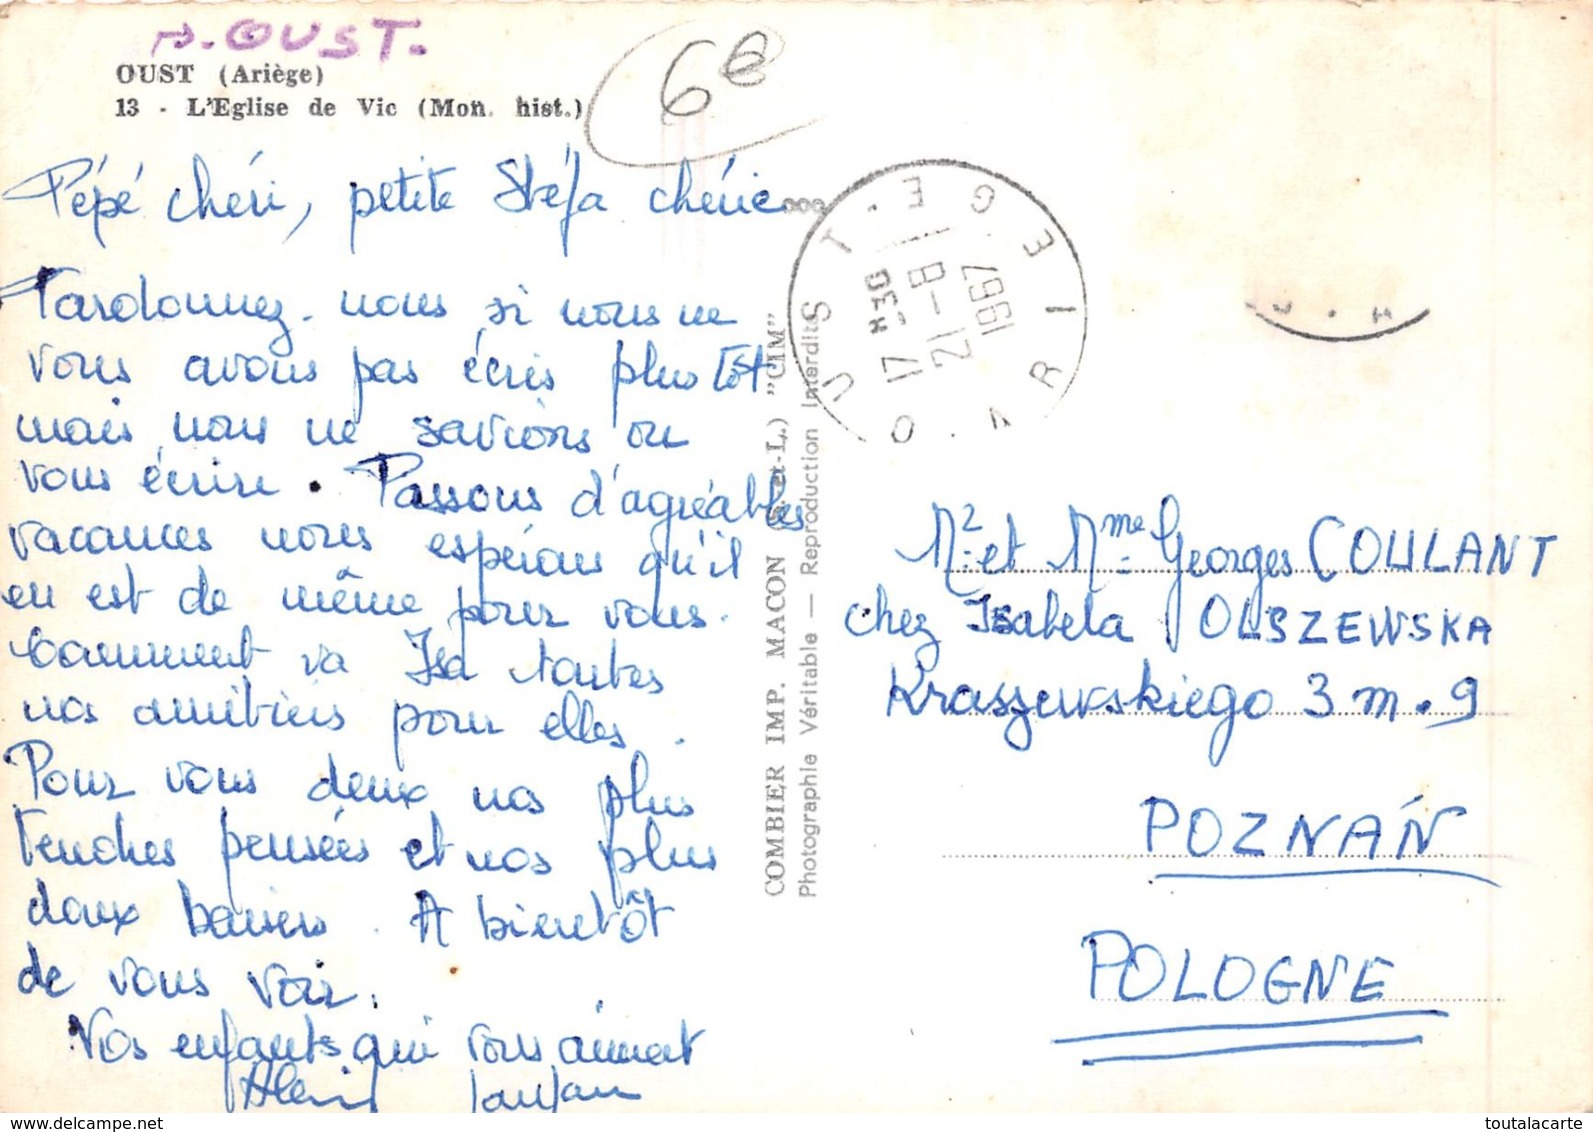 OUST.
OUST (Ariège)
13 - L'Eglise de Vic (Mon. hist.)
6e
Pépé chéri, petite Stéfa chérie
Pardonnez-nous si nous ne
vous avons pas écris plus tôt
mais nous ne savions ou
vous écrire. Passons d'agréables
vacances nous espérons qu'il
en est de même pour vous.
Comment va Isa toutes
nos amitiés pour elles.
Pour vous deux nos plus
tendres pensées et nos plus
doux baisers. A bientôt
de vous voir.
Vos enfants qui vous aiment
Alain
COMBIER IMP. MACON (S.-et-L.) "CIM"
Photographie Véritable — Reproduction Interdite
OUST. ARIEGE
17 H 30
8-12
1967
Mr et Mme Georges COULANT
chez Isabela OLSZEWSKA
Kraszewskiego 3 m. 9
POZNAŃ
POLOGNE
www.toutalacarte.com